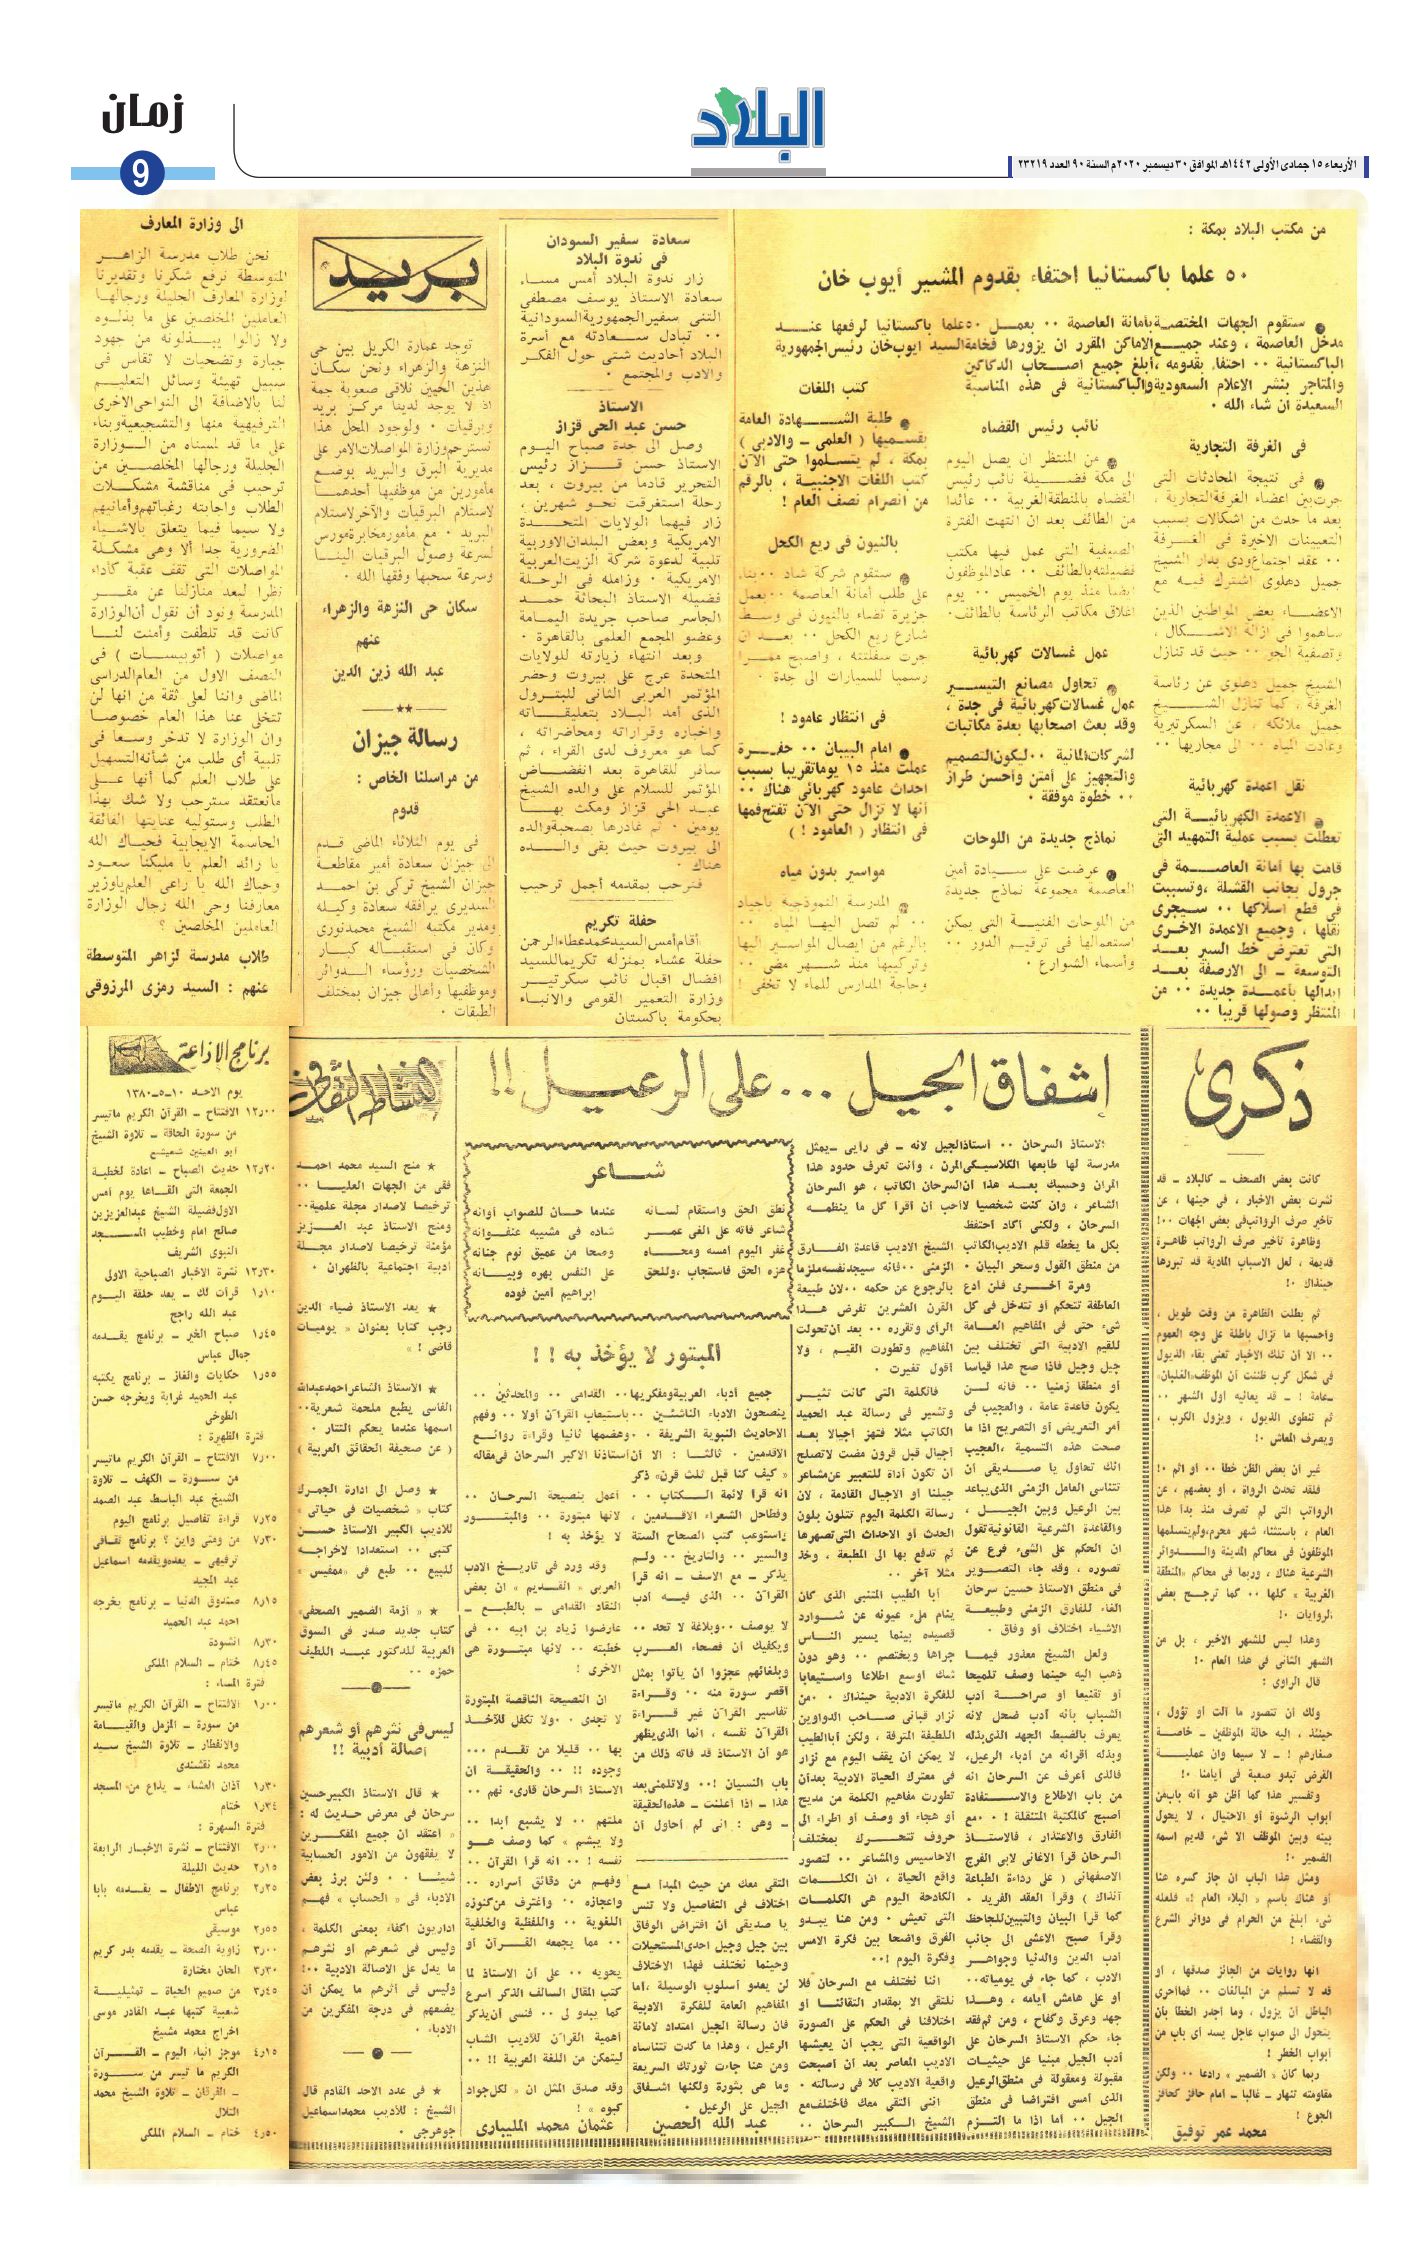 زمان
9
البلاد
الأربعاء ١٥ جمادى الأولى ١٤٤٢هـ الموافق ٣٠ ديسمبر ٢٠٢٠م السنة ٩٠ العدد ٢٣٢١٩
من مكتب البلاد بمكة :
٥٠ علما باكستانيا احتفاء بقدوم المشير أيوب خان
ستقوم الجهات المختصة بأمانة العاصمة ٠٠ بعمل ٥٠ علما باكستانيا لرفعها عند
مدخل العاصمة ، وعند جميع الاماكن المقرر ان يزورها فخامة السيد ايوب خان رئيس الجمهورية
الباكستانية ٠٠ احتفاء بقدومه ، أبلغ جميع أصحاب الدكاكين
والمتاجر بنشر الاعلام السعودية والباكستانية في هذه المناسبة
السعيدة ان شاء الله ٠
في الغرفة التجارية
في نتيجة المحادثات التي
جرت بين اعضاء الغرفة التجارية ،
بعد ما حدث من اشكالات بسبب
التعيينات الاخيرة في الغرفة
٠٠ عقد اجتماع ودي بدار الشيخ
جميل دهلوى اشترك فيه مع
الاعضاء بعض المواطنين الذين
ساهموا في ازالة الاشكال ،
وتصفية الجو ٠٠ حيث قد تنازل
الشيخ جميل دهلوى عن رئاسة
الغرفة ، كما تنازل الشيخ
جميل ملائكه ، عن السكرتيرية
وعادت المياه ٠٠ الى مجاريها ٠٠
نقل اعمدة كهربائية
الاعمدة الكهربائية التي
تعطلت بسبب عملية التمهيد التي
قامت بها أمانة العاصمة في
جرول بجانب القشلة ، وتسببت
في قطع اسلاكها ٠٠ سيجرى
نقلها ، وجميع الاعمدة الاخرى
التي تعترض خط السير بعد
التوسعة - الى الارصفة بعد
ابدالها بأعمدة جديدة ٠٠ من
المنتظر وصولها قريبا ٠٠
نائب رئيس القضاه
من المنتظر ان يصل اليوم
الى مكة فضيلة نائب رئيس
القضاه بالمنطقة الغربية ٠٠ عائدا
من الطائف بعد ان انتهت الفترة
الصيفية التي عمل فيها مكتب
فضيلته بالطائف ٠٠ عاد الموظفون
ايضا منذ يوم الخميس ٠٠ يوم
اغلاق مكاتب الرئاسة بالطائف ٠
عمل غسالات كهربائية
تحاول مصانع التيسير
عمل غسالات كهربائية في جدة ،
وقد بعث اصحابها بعدة مكاتبات
لشركات المانية ٠٠ ليكون التصميم
والتجهيز على أمتن وأحسن طراز
٠٠ خطوة موفقة ٠
نماذج جديدة من اللوحات
عرضت على سيادة أمين
العاصمة مجموعة نماذج جديدة
من اللوحات الفنية التي يمكن
استعمالها في ترقيم الدور ٠٠
وأسماء الشوارع ٠
كتب اللغات
طلبة الشهادة العامة
بقسميها ( العلمي - والادبي )
بمكة ، لم يتسلموا حتى الآن
كتب اللغات الاجنبية ، بالرغم
من انصرام نصف العام !
بالنيون في ريع الكحل
ستقوم شركة شاد ٠٠ بناء
على طلب أمانة العاصمة ٠٠ بعمل
جزيرة تضاء بالنيون في وسط
شارع ريع الكحل ٠٠ بعد ان
جرت سفلتته ، واصبح ممرا
رسميا للسيارات الى جدة ٠
في انتظار عامود !
امام البيبان ٠٠ حفرة
عملت منذ ١٥ يوما تقريبا بسبب
احداث عامود كهربائي هناك ٠٠
أنها لا تزال حتى الآن تفتح فمها
في انتظار ( العامود ! )
مواسير بدون مياه
المدرسة النموذجية بأجياد
٠٠ لم تصل اليها المياه ٠٠
بالرغم من ايصال المواسير اليها
وتركيبها منذ شهر مضى ٠٠
وحاجة المدارس للماء لا تخفى !
سعادة سفير السودان
في ندوة البلاد
زار ندوة البلاد أمس مساء
سعادة الاستاذ يوسف مصطفى
التني سفير الجمهورية السودانية
٠٠ تبادل سعادته مع أسرة
البلاد أحاديث شتى حول الفكر
والادب والمجتمع ٠
الاستاذ
حسن عبد الحي قزاز
وصل الى جدة صباح اليوم
الاستاذ حسن قزاز رئيس
التحرير قادما من بيروت ، بعد
رحلة استغرقت نحو شهرين ،
زار فيهما الولايات المتحدة
الامريكية وبعض البلدان الاوربية
تلبية لدعوة شركة الزيت العربية
الامريكية ٠ وزامله في الرحلة
فضيلة الاستاذ البحاثة حمد
الجاسر صاحب جريدة اليمامة
وعضو المجمع العلمي بالقاهرة ٠
وبعد انتهاء زيارته للولايات
المتحدة عرج على بيروت وحضر
المؤتمر العربي الثاني للبترول
الذي أمد البلاد بتعليقاته
واخباره وقراراته ومحاضراته ،
كما هو معروف لدى القراء ، ثم
سافر للقاهرة بعد انفضاض
المؤتمر للسلام على والده الشيخ
عبد الحي قزاز ومكث بها
يومين ٠ ثم غادرها بصحبة والده
الى بيروت حيث بقى والده
هناك ٠
فنرحب بمقدمه أجمل ترحيب
حفلة تكريم
أقام أمس السيد محمد عطاء الرحمن
حفلة عشاء بمنزله تكريما للسيد
افضال اقبال نائب سكرتير
وزارة التعمير القومي والانباء
بحكومة باكستان
بريد
توجد عمارة الكريل بين حي
النزهة والزهراء ونحن سكان
هذين الحيين نلاقي صعوبة جمة
اذ لا يوجد لدينا مركز بريد
وبرقيات ٠ ولوجود المحل هذا
نسترحم وزارة المواصلات الامر على
مديرية البرق والبريد بوضع
مأمورين من موظفيها أحدهما
لاستلام البرقيات والآخر لاستلام
البريد ٠ مع مأمور مخابرة مورس
لسرعة وصول البرقيات الينا
وسرعة سحبها وفقها الله ٠
سكان حي النزهة والزهراء
عنهم
عبد الله زين الدين
رسالة جيزان
من مراسلنا الخاص :
قدوم
في يوم الثلاثاء الماضي قدم
الى جيزان سعادة أمير مقاطعة
جيزان الشيخ تركي بن احمد
السديري يرافقه سعادة وكيله
ومدير مكتبه الشيخ محمد نوري
وكان في استقباله كبار
الشخصيات ورؤساء الدوائر
وموظفيها وأهالي جيزان بمختلف
الطبقات ٠
الى وزارة المعارف
نحن طلاب مدرسة الزاهر
المتوسطة نرفع شكرنا وتقديرنا
لوزارة المعارف الجليلة ورجالها
العاملين المخلصين على ما بذلوه
ولا زالوا يبذلونه من جهود
جبارة وتضحيات لا تقاس في
سبيل تهيئة وسائل التعليم
لنا بالاضافة الى النواحي الاخرى
الترفيهية منها والتشجيعية وبناء
على ما قد لمسناه من الوزارة
الجليلة ورجالها المخلصين من
ترحيب في مناقشة مشكلات
الطلاب واجابته رغباتهم وأمانيهم
ولا سيما فيما يتعلق بالاشياء
الضرورية جدا ألا وهي مشكلة
المواصلات التي تقف عقبة كأداء
نظرا لبعد منازلنا عن مقر
المدرسة ونود أن نقول أن الوزارة
كانت قد تلطفت وأمنت لنا
مواصلات ( أتوبيسات ) في
النصف الاول من العام الدراسي
الماضي واننا لعلى ثقة من انها لن
تتخلى عنا هذا العام خصوصا
وان الوزارة لا تدخر وسعا في
تلبية أي طلب من شأنه التسهيل
على طلاب العلم كما أنها على
مانعتقد سترحب ولا شك بهذا
الطلب وستوليه عنايتها الفائقة
الحاسمة الايجابية فحياك الله
يا رائد العلم يا مليكنا سعود
وحياك الله يا راعي العلم ياوزير
معارفنا وحي الله رجال الوزارة
العاملين المخلصين ؟
طلاب مدرسة لزاهر المتوسطة
عنهم : السيد رمزي المرزوقي
ذكرى
كانت بعض الصحف - كالبلاد - قد
نشرت بعض الاخبار ، في حينها ، عن
تأخير صرف الرواتب في بعض الجهات ٠٠!
وظاهرة تأخير صرف الرواتب ظاهرة
قديمة ، لعل الاسباب المادية قد تبررها
حينذاك ٠!
ثم بطلت الظاهرة من وقت طويل ،
وأحسبها ما تزال باطلة على وجه العموم
٠٠ الا أن تلك الاخبار تعنى بقاء الذيول
في شكل كرب ظننت أن الموظف «الغلبان»
-عامة ! - قد يعانيه اول الشهر ٠٠
ثم تنطوي الذيول ، ويزول الكرب ،
ويصرف المعاش ٠!
غير ان بعض الظن خطأ ٠٠ او اثم ٠!
فلقد تحدث الرواة ، او بعضهم ، عن
الرواتب التي لم تصرف منذ بدأ هذا
العام ، باستثناء شهر محرم ، ولم يتسلمها
الموظفون في محاكم المدينة والدوائر
الشرعية هناك ، وربما في محاكم «المنطقة
الغربية » كلها ٠٠ كما ترجح بعض
الروايات ٠!
وهذا ليس للشهر الاخير ، بل من
الشهر الثاني في هذا العام ٠!
قال الراوي :
ولك ان تتصور ما آلت او تؤول ،
حينئذ ، اليه حالة الموظفين - خاصة
صغارهم ! - لا سيما وان عملية
القرض تبدو صعبة في أيامنا ٠!
وتفسير هذا كما أظن هو أنه باب من
ابواب الرشوة أو الاحتيال ، لا يحول
بينه وبين الموظف الا شيء قديم اسمه
الضمير ٠!
ومثل هذا الباب ان جاز كسره هنا
أو هناك باسم « البلاء العام !» فلعله
شيء ابلغ من الحرام في دوائر الشرع
والقضاء !
انها روايات من الجائز صدقها ، او
قد لا تسلم من المبالغات ٠٠ فما أحرى
الباطل أن يزول ، وما أجدر الخطأ بأن
يتحول الى صواب عاجل يسد أي باب من
أبواب الخطر !
ربما كان « الضمير » رادعا ٠٠ ولكن
مقاومته تنهار - غالبا - أمام حافز كحافز
الجوع !
محمد عمر توفيق
إشفاق الجيل ... على الرعيل !!
الاستاذ السرحان ٠٠ أستاذ الجيل لانه - في رأيي - يمثل
مدرسة لها طابعها الكلاسيكي المرن ، وأنت تعرف حدود هذا
المران وحسبك بعد هذا أن السرحان الكاتب ، هو السرحان
الشاعر ، وان كنت شخصيا لا أحب أن أقرأ كل ما ينظمه
السرحان ، ولكني أكاد أحتفظ
بكل ما يخطه قلم الاديب الكاتب
من منطق القول وسحر البيان ٠
ومرة أخرى فلن أدع
العاطفة تتحكم أو تتدخل في كل
شيء حتى في المفاهيم العامة
للقيم الادبية التي تختلف بين
جيل وجيل فاذا صح هذا قياسا
أو منطقا زمنيا ٠٠ فانه لن
يكون قاعدة عامة ، والعجيب في
أمر التعريض أو التصريح اذا ما
صحت هذه التسمية ، العجيب
انك تحاول يا صديقي أن
تتناسى العامل الزمني الذي يباعد
بين الرعيل وبين الجيل ،
والقاعدة الشرعية القانونية تقول
ان الحكم على الشيء فرع عن
تصوره ، وقد جاء التصوير
في منطق الاستاذ حسين سرحان
الغاء للفارق الزمني وطبيعة
الاشياء اختلاف أو وفاق ٠
ولعل الشيخ معذور فيما
ذهب اليه حينما وصف تلميحا
أو تقنيعا أو صراحة أدب
الشباب بأنه أدب ضحل لانه
يعرف بالضبط الجهد الذي بذله
وبذله أقرانه من أدباء الرعيل،
فالذي أعرف عن السرحان انه
من باب الاطلاع والاستفادة
أصبح كالمكتبة المتنقلة ! ٠٠ مع
الفارق والاعتذار ، فالاستاذ
السرحان قرأ الاغاني لابي الفرج
الاصفهاني ( على رداءة الطباعة
آنذاك ) وقرأ العقد الفريد ٠
كما قرأ البيان والتبيين للجاحظ
وقرأ صبح الاعشى الى جانب
أدب الدين والدنيا وجواهر
الادب ، كما جاء في يومياته ٠٠
أو على هامش أيامه ، وهذا
جهد وعرق وكفاح ، ومن ثم فقد
جاء حكم الاستاذ السرحان على
أدب الجيل مبنيا على حيثيات
مقبولة ومعقولة في منطق الرعيل
الذي أمسى افتراضا في منطق
الجيل ٠٠ أما اذا ما التزم
الشيخ الاديب قاعدة الفارق
الزمني ٠٠ فانه سيجد نفسه ملزما
بالرجوع عن حكمه ٠٠ لان طبيعة
القرن العشرين تفرض هذا
الرأي وتقرره ٠٠ بعد أن تحولت
المفاهيم وتطورت القيم ، ولا
أقول تغيرت ٠
فالكلمة التي كانت تثير
وتشير في رسالة عبد الحميد
الكاتب مثلا فتهز أجيالا بعد
أجيال قبل قرون مضت لا تصلح
ان تكون أداة للتعبير عن مشاعر
جيلنا أو الاجيال القادمة ، لان
رسالة الكلمة اليوم تتلون بلون
الحدث أو الاحداث التي تصهرها
ثم تدفع بها الى المطبعة ، وخذ
مثلا آخر ٠٠
أبا الطيب المتنبي الذي كان
ينام ملء عيونه عن شوارد
قصيده بينما يسير الناس
جراها ويختصم ٠٠ وهو دون
شك أوسع اطلاعا واستيعابا
للفكرة الادبية حينذاك ٠٠ من
نزار قباني صاحب الدواوين
اللطيفة المترفة ، ولكن أبا الطيب
لا يمكن ان يقف اليوم مع نزار
في معترك الحياة الادبية بعد أن
تطورت مفاهيم الكلمة من مديح
أو هجاء أو وصف أو اطراء الى
حروف تتحرك بمختلف
الاحاسيس والمشاعر ٠٠ لتصور
واقع الحياة ، ان الكلمات
الكادحة اليوم هي الكلمات
التي تعيش ٠ ومن هنا يبدو
الفرق واضحا بين فكرة الامس
وفكرة اليوم !٠٠
اننا نختلف مع السرحان فلا
نلتقي الا بمقدار التقائنا أو
اختلافنا في الحكم على الصورة
الواقعية التي يجب أن يعيشها
الاديب المعاصر بعد أن أصبحت
واقعية الاديب كلا في رسالته ٠
انني التقي معك فاختلف مع
الشيخ الكبير السرحان ٠٠
التقى معك من حيث المبدأ مع
اختلاف في التفاصيل ولا تنس
يا صديقي أن افتراض الوفاق
بين جيل وجيل احدى المستحيلات
وحينما نختلف فهذا الاختلاف
لن يعدو أسلوب الوسيلة ، أما
المفاهيم العامة للفكرة الادبية
فان رسالة الجيل امتداد لامانة
الرعيل ، وهذا ما كدت تتناساه
ومن هنا جاءت ثورتك السريعة
وما هي بثورة ولكنها اشفاق
الجيل على الرعيل ٠
عبد الله الحصين
شاعر
نطق الحق واستقام لسانه
عندما حان للصواب أوانه
شاعر فاته على الغى عمر
شاده في مشيبه عنفوانه
غفر اليوم أمسه ومحاه
وصحا من عميق نوم جنانه
هزه الحق فاستجاب ، وللحق
على النفس بهره وبيانه
ابراهيم أمين فوده
المبتور لا يؤخذ به ! !
جميع أدباء العربية ومفكريها ٠٠ القدامى ٠٠ والمحدثين ٠٠
ينصحون الادباء الناشئين ٠٠ باستيعاب القرآن أولا ٠٠ وفهم
الاحاديث النبوية الشريفة ٠٠ وهضمها ثانيا وقراءة روائع
الاقدمين ٠ ثالثا : الا ان أستاذنا الاكبر السرحان في مقاله
« كيف كنا قبل ثلث قرن » ذكر
انه قرأ لائمة الكتاب ٠٠
وفطاحل الشعراء الاقدمين ،
واستوعب كتب الصحاح الستة
والسير ٠٠ والتاريخ ٠٠ ولم
يذكر - مع الاسف - انه قرأ
القرآن ٠٠ الذي فيه أدب
لا يوصف ٠٠ وبلاغة لا تحد ٠٠
ويكفيك أن فصحاء العرب
وبلغائهم عجزوا ان يأتوا بمثل
أقصر سورة منه ٠٠ وقراءة
تفاسير القرآن غير قراءة
القرآن نفسه ، انما الذي يظهر
هو أن الاستاذ قد فاته ذلك من
باب النسيان !٠٠ ولا تلمني بعد
هذا - اذا أعلنت - هذه الحقيقة
- وهي : اني لم أحاول أن
أعمل بنصيحة السرحان ٠٠
لانها مبتورة ٠٠ والمبتور
لا يؤخذ به !
وقد ورد في تاريخ الادب
العربي « القديم » ان بعض
النقاد القدامى - بالطبع -
عارضوا زياد بن ابيه ٠٠ في
خطبته ٠٠ لانها مبتورة هي
الاخرى !
ان النصيحة الناقصة المبتورة
لا تجدي ٠٠ ولا تكفل للآخذ
بها ٠٠ قليلا من تقدم ٠٠٠
وجوده !! ٠٠ والحقيقة ان
الاستاذ السرحان قارىء نهم ٠٠
ملتهم ٠٠ لا يشبع أبدا ٠٠
ولا يبشم » كما وصف هو
نفسه ! ٠٠ انه قرأ القرآن ٠٠
وفهم من دقائق أسراره ٠٠
واعجازه ٠٠ وأغترف من كنوزه
اللغوية ٠٠ واللفظية والخلقية
٠٠ مما يجمعه القرآن أو
يحويه ٠٠ على أن الاستاذ لما
كتب المقال السالف الذكر أسرع
كما يبدو لي ٠٠ فنسى أن يذكر
أهمية القرآن للأديب الشاب
ليتمكن من اللغة العربية !! ٠٠
وقد صدق المثل ان « لكل جواد
كبوه » !
عثمان محمد المليباري
النشاط الثقافي
★ منح السيد محمد احمد
فقي من الجهات العليا ٠٠
ترخيصا لاصدار مجلة علمية ٠٠
ومنح الاستاذ عبد العزيز
مؤمنة ترخيصا لاصدار مجلة
أدبية اجتماعية بالظهران ٠
★ يعد الاستاذ ضياء الدين
رجب كتابا بعنوان « يوميات
قاضي ! »
★ الاستاذ الشاعر احمد عبدالله
الفاسي يطبع ملحمة شعرية ٠٠
اسمها عندما يحكم التتار ٠
( عن صحيفة الحقائق العربية )
★ وصل الى ادارة الجمرك
كتاب « شخصيات في حياتي »
للاديب الكبير الاستاذ حسن
كتبي ٠٠ استعدادا لاخراجه
للبيع ٠٠ طبع في «ممفيس »
★ « أزمة الضمير الصحفي»
كتاب جديد صدر في السوق
العربية للدكتور عبد اللطيف
حمزه ٠٠
ليس في نثرهم أو شعرهم
أصالة أدبية !!
★ قال الاستاذ الكبير حسين
سرحان في معرض حديث له :
« أعتقد أن جميع المفكرين
لا يفقهون من الامور الحسابية
شيئا ٠٠ ولئن برز بعض
الادباء في « الحساب » فهم
اداريون اكفاء بمعنى الكلمة ،
وليس في شعرهم أو نثرهم
ما يدل على الاصالة الادبية ٠٠!
وليس في أثرهم ما يمكن أن
يضعهم في درجة المفكرين من
الادباء ٠
★ في عدد الاحد القادم قال
الشيخ : للاديب محمد اسماعيل
جوهرجي ٠
برنامج الإذاعة
يوم الاحد ١٠-٥-١٣٨٠
١٢٫٠٠ الافتتاح - القرآن الكريم ماتيسر
من سورة الحاقة - تلاوة الشيخ
أبو العينين شعيشع
١٢٫٢٠ حديث الصباح - اعادة لخطبة
الجمعة التي القاها يوم أمس
الاول فضيلة الشيخ عبد العزيز بن
صالح امام وخطيب المسجد
النبوي الشريف
١٢٫٣٠ نشرة الاخبار الصباحية الاولى
١٫١٠ قرأت لك - بعد حلقة اليوم
عبد الله راجح
١٫٤٥ صباح الخير - برنامج يقدمه
جمال عباس
١٫٥٥ حكايات والغاز - برنامج يكتبه
عبد الحميد غرابة ويخرجه حسن
الطوخي
فترة الظهيرة :
٧٫٠٠ الافتتاح - القرآن الكريم ماتيسر
من سورة - الكهف - تلاوة
الشيخ عبد الباسط عبد الصمد
٧٫٢٥ قراءة تفاصيل برنامج اليوم
٧٫٣٠ من ومتى وأين ؟ برنامج ثقافي
ترفيهي - يعده ويقدمه اسماعيل
عبد المجيد
٨٫١٥ صندوق الدنيا - برنامج يخرجه
احمد عبد الحميد
٨٫٣٠ أنشودة
٨٫٤٥ ختام - السلام الملكي
فترة المساء :
١٫٠٠ الافتتاح - القرآن الكريم ماتيسر
من سورة - المزمل والقيامة
والانفطار - تلاوة الشيخ سيد
محمد نقشبندي
١٫٣٠ آذان العشاء - يذاع من المسجد
١٫٣٤ ختام
فترة السهرة :
٢٫٠٠ الافتتاح - نشرة الاخبار الرابعة
٢٫١٥ حديث الليلة
٢٫٢٥ برنامج الاطفال - يقدمه بابا
عباس
٢٫٥٥ موسيقى
٣٫٠٠ زاوية الصحة - يقدمه بدر كريم
٣٫٣٠ الحان مختارة
٣٫٤٥ من صميم الحياة - تمثيلية
شعبية كتبها عبد القادر موسى
اخراج محمد مشيخ
٤٫١٥ موجز أنباء اليوم - القرآن
الكريم ما تيسر من سورة
- الفرقان - تلاوة الشيخ محمد
التلال
٤٫٥٠ ختام - السلام الملكي